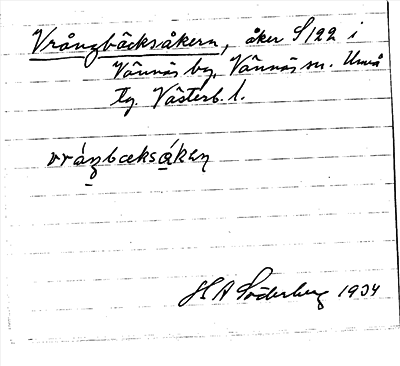 Vrångbäcksåkern, åker S122 i
Vännäs by, Vännäs sn. Umeå
tg. Västerb. l.
vráŋbæksåkɐn
H A Söderberg 1934